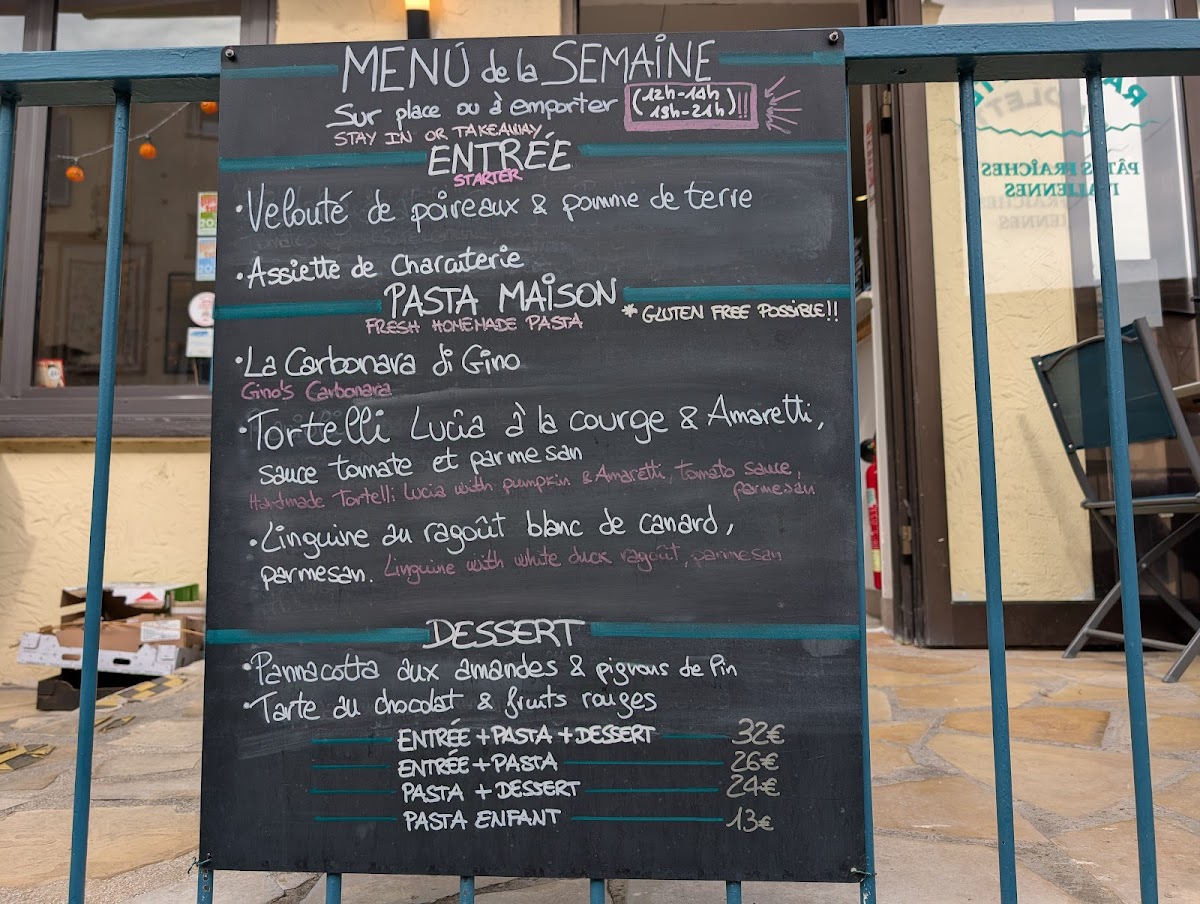 MENÚ de la SEMAINE
Sur place ou à emporter
(12h-14h
19h-21h)!!!
STAY IN OR TAKEAWAY
ENTRÉE
STARTER
• Velouté de poireaux & pomme de terre
• Assiette de Charcuterie
PASTA MAISON
FRESH HOMEMADE PASTA
* GLUTEN FREE POSSIBLE!!
• La Carbonara di Gino
Gino's Carbonara
• Tortelli Lucia à la courge & Amaretti,
sauce tomate et parmesan
Handmade Tortelli Lucia with pumpkin & Amaretti, tomato sauce,
parmesan
• Linguine au ragoût blanc de canard,
parmesan. Linguine with white duck ragoût, parmesan
DESSERT
• Pannacotta aux amandes & pignons de Pin
• Tarte au chocolat & fruits rouges
ENTRÉE + PASTA + DESSERT 32€
ENTRÉE + PASTA 26€
PASTA + DESSERT 24€
PASTA ENFANT 13€
PÂTES FRAÎCHES
ITALIENNES